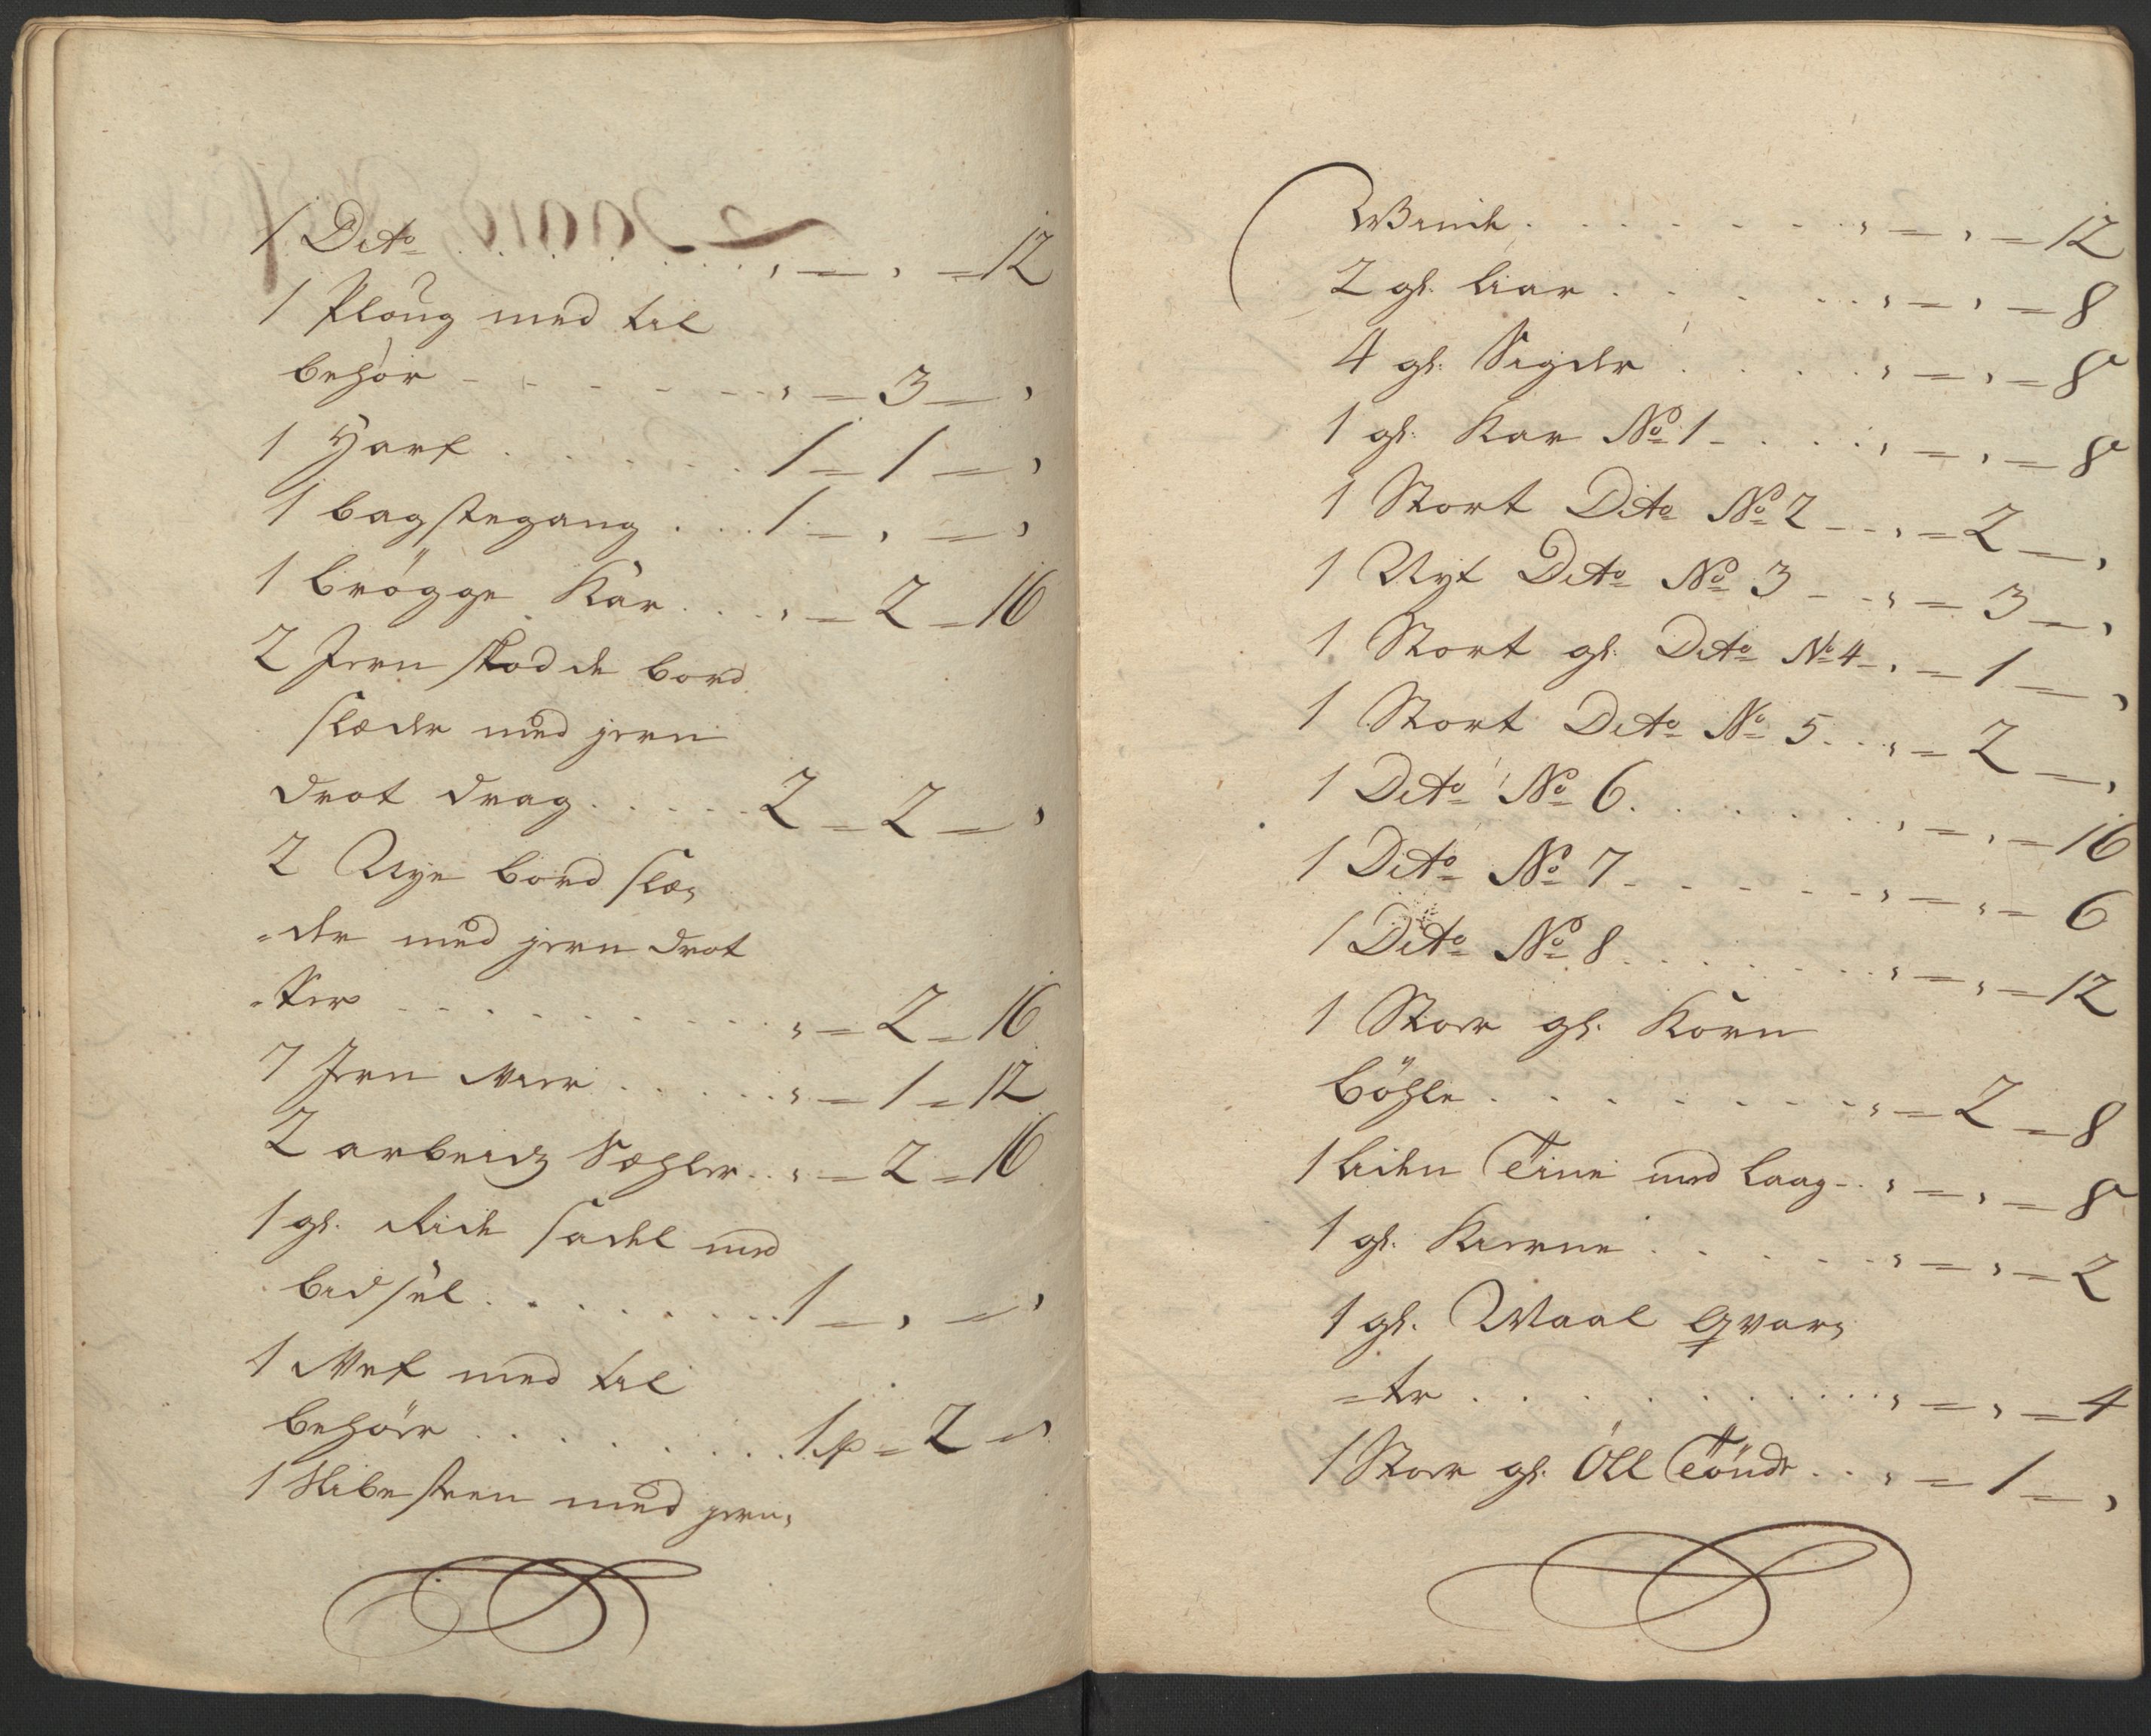 1 Dito . . . . . . . , = , = 12
1 Ploug med til
behör - - - - - - , = 3 = ,
1 Harf . . . . . . 1 = 1 = ,
1 bagstegang . . . 1 = , = ,
1 brögge Kar . . . , = 2 = 16
2 Jern skodde bord
slæder med jern
drot drag . . . . . 2 = 2 = ,
2 Nye bord slæ,
=der med jern drot
=ter - - - - - - - , = 2 = 16
7 Jern . . . . . , = 1 = 12
2 arbeidz Sæhler . . , = 2 = 16
1 gl. Ride sadel med
bidsel . . . . . . . 1 = , = ,
1 Vef med til
behör . . . . . . . 1 = 2 = ,
1 Slibesteen med jern,
Vinde . . . . . . . , = , = 12
2 gl. Liar . . . . . , = , = 8
4 gl. Sigder . . . . , = , = 8
1 gl. Kar No 1 - . . . , = , = 8
1 Stort Dito No 2 - - , = 2 = ,
1 Nyt Dito No 3 - - , = 3 = ,
1 Stort gl. Dito No 4 - , = 1 = ,
1 Stort Dito No 5 . . . , = 2 = ,
1 Dito No 6 . . . . . . . , = , = 16
1 Dito No 7 - - - - - - , = , = 6
1 Dito No 8 . . . . . . . , = , = 12
1 Stor gl. Korn
böhle . . . . . . . . , = 2 = 8
1 liden Tine med laag - . , = , = 8
1 gl. Kierne . . . . . . , = , = 2
1 gl. Maal qvar,
=ter . . . . . . . . . , = , = 4
1 Stor gl. Öll Tönde . . , = 1 = ,